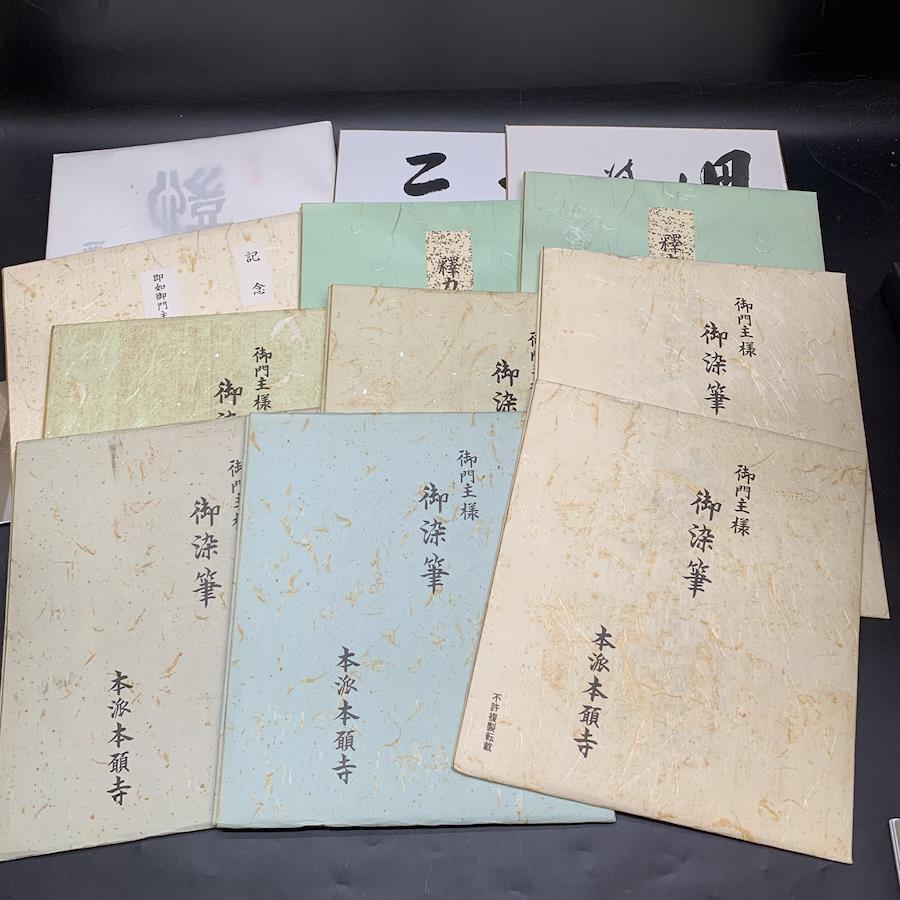 二
記念
即如御門主
釋
釋
御門主様
御染
御門主
御染
御門主様
御染筆
御門主様
御染筆
本派本願寺
御門主様
御染筆
本派本願寺
御門主様
御染筆
本派本願寺
不許複製転載